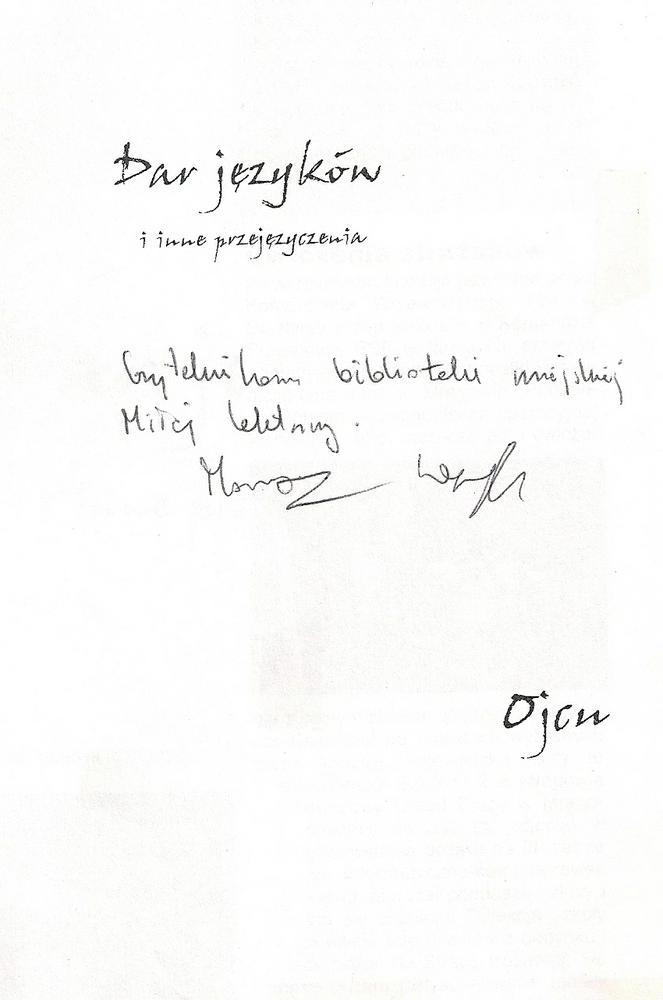 Dar języków
i inne przejęzyczenia
Czytelnikom biblioteki miejskiej
Miłej lektury.
Ojcu